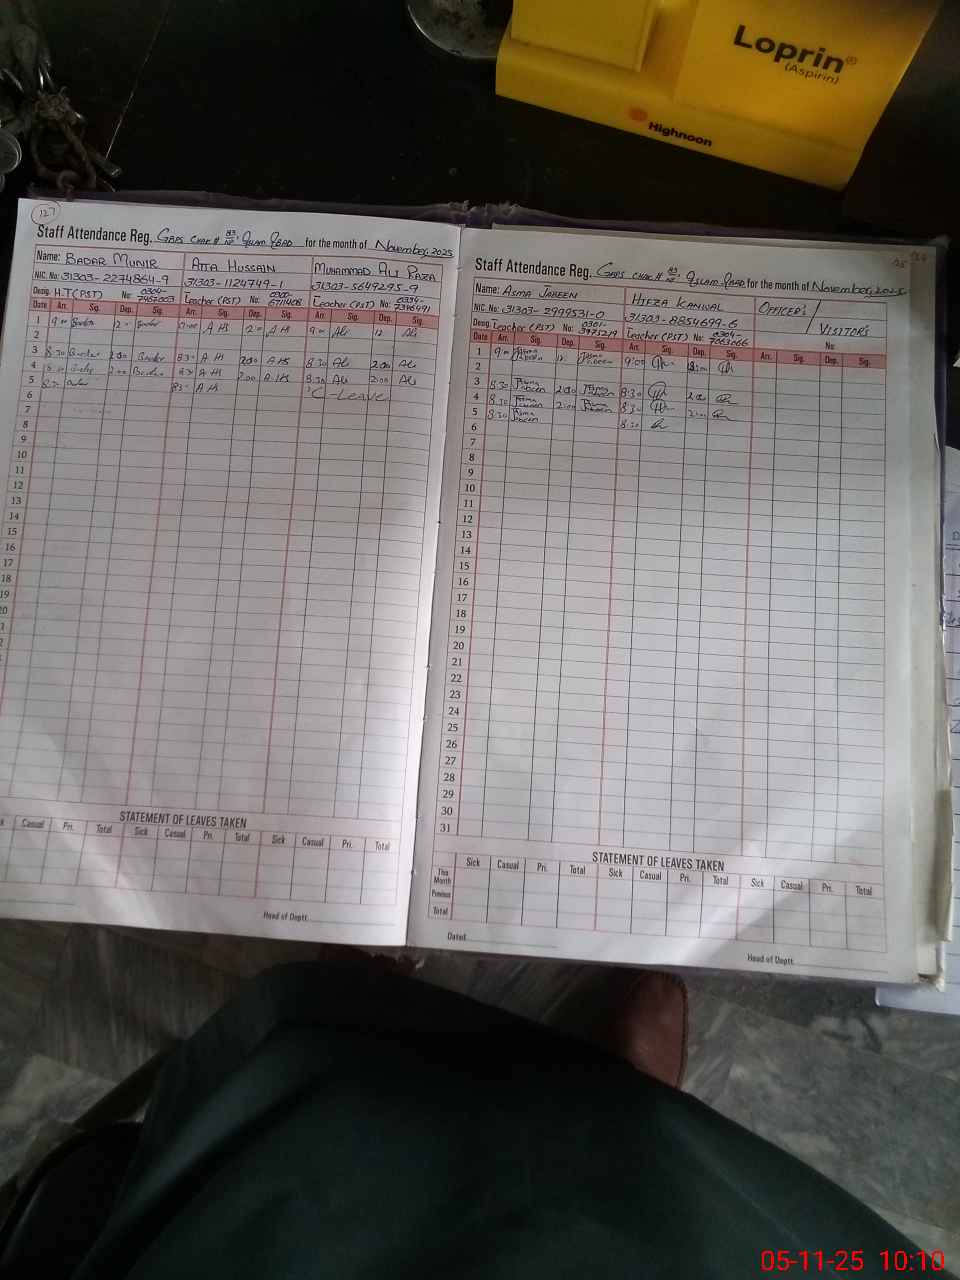 Loprin®
(Aspirin)
Highnoon
127
Staff Attendance Reg. GBPS CHAK # ISLAM ABAD for the month of November, 2025
Name: BADAR MUNIR ATTA HUSSAIN MUHAMMAD ALI RAZA
NIC. No: 31303-2274864-9 31303-1124749-1 31303-5649295-9
Desig. H.T (PST) No: Teacher (PST) No: Teacher (PST) No:
Date Arr. Sig. Dep. Sig. Arr. Sig. Dep. Sig. Arr. Sig. Dep. Sig.
1 A HS A HS Ali 12 Ali
2
3 8:30 2:00 A HS 2:00 A HS 8:30 Ali 2:00 Ali
4 2:00 A HS 2:00 A HS 8:30 Ali 2:00 Ali
5 8:30 A HS C-LEAVE
6
7
8
9
10
11
12
13
14
15
16
17
18
19
20
STATEMENT OF LEAVES TAKEN
Casual Pri. Total Sick Casual Pri. Total Sick Casual Pri. Total
Head of Deptt.
Staff Attendance Reg. GBPS CHAK # ISLAM ABAD for the month of November, 2025
Name: ASMA JABEEN HIFZA KANWAL OFFICER'S / VISITOR'S
NIC. No: 31303-2999531-0 31303-8854699-6
Desig. Teacher (PST) No: Teacher (PST) No: No:
Date Arr. Sig. Dep. Sig. Arr. Sig. Dep. Sig. Arr. Sig. Dep. Sig.
1 Asma Jabeen 12 Asma Jabeen 9:00
2
3 8:30 Asma Jabeen 2:00 Asma Jabeen 8:30 2:00
4 8:30 Asma Jabeen 2:00 Asma Jabeen 8:30 2:00
5 8:30 Asma Jabeen 8:30
6
7
8
9
10
11
12
13
14
15
16
17
18
19
20
21
22
23
24
25
26
27
28
29
30
31
STATEMENT OF LEAVES TAKEN
Sick Casual Pri. Total Sick Casual Pri. Total Sick Casual Pri. Total
This Month
Previous
Total
Dated
Head of Deptt.
05-11-25 10:10